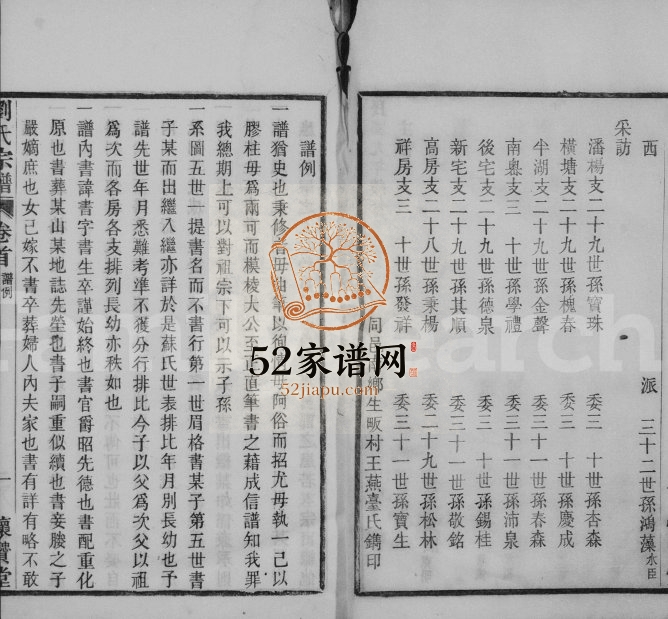 西　派　三十二世孫鴻藻水臣
采訪
潘楊支二十九世孫寶珠　委三　十世孫杏森
橫塘支二十九世孫槐春　委三　十世孫慶成
半湖支二十九世孫金聲　委三十一世孫春森
南奧支三　十世孫學禮　委三十一世孫沛泉
後宅支二十九世孫德泉　委三　十世孫錫桂
新宅支二十九世孫其順　委三十一世孫敬銘
高房支二十八世孫秉楊　委二十九世孫松林
祥房支三　十世孫發祥　委三十一世孫寶生
同 鄉生畈村王燕臺氏鐫印
譜例
一譜猶史也秉修 毋 筆以徇 毋阿俗而招尤毋執一己以
膠柱毋爲兩可而模棱大公至 直筆書之藉成信譜知我罪
我總期上可以對祖宗下可以示子孫
一系圖五世一提書名而不書行第一世眉格書某子第五世書
子某而出繼入繼亦詳於是蘇氏世表排比年月別長幼也予
譜先世年月悉難考準不獲分行排比今子以父爲次父以祖
爲次而各房各支排列長幼亦秩如也
一譜內書諱書字書生卒謹始終也書官爵昭先德也書配重化
原也書葬某山某地誌先塋也書子嗣重似續也書妾媵之子
嚴嫡庶也女已嫁不書卒葬婦人內夫家也書有詳有略不敢
劉氏宗譜　卷首　譜例　一　懷賢堂
52家谱网
52jiapu.com